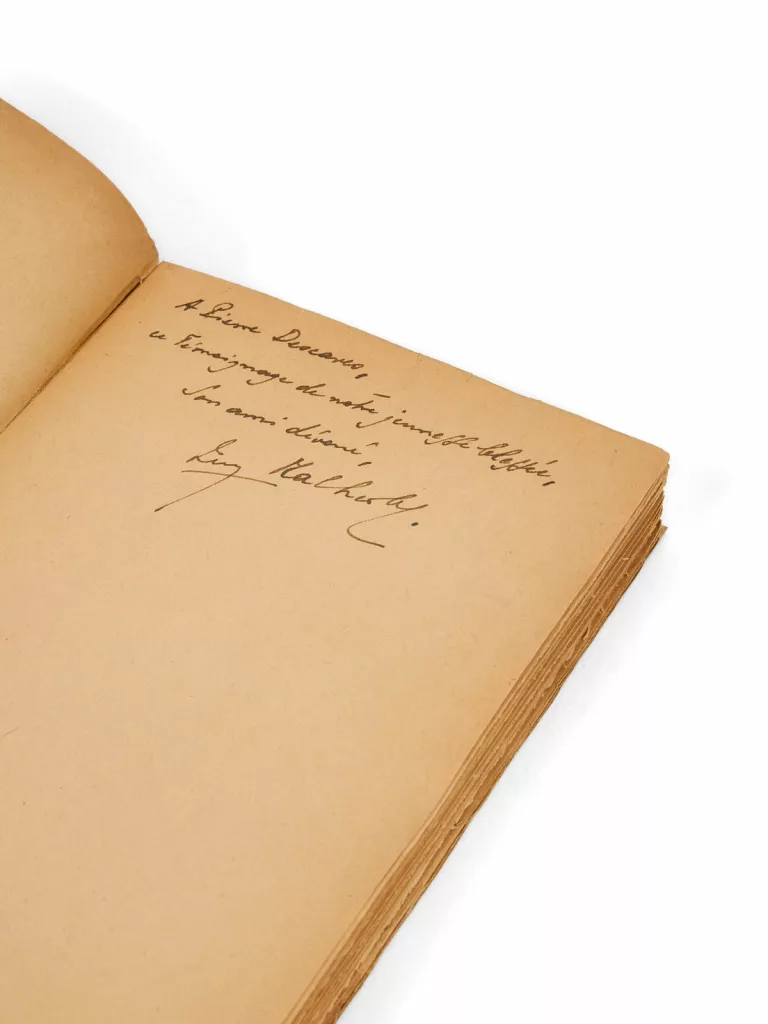 A Pierre Descaves,
ce Témoignage de notre jeunesse blessée,
Son ami dévoué,
Malherbe.